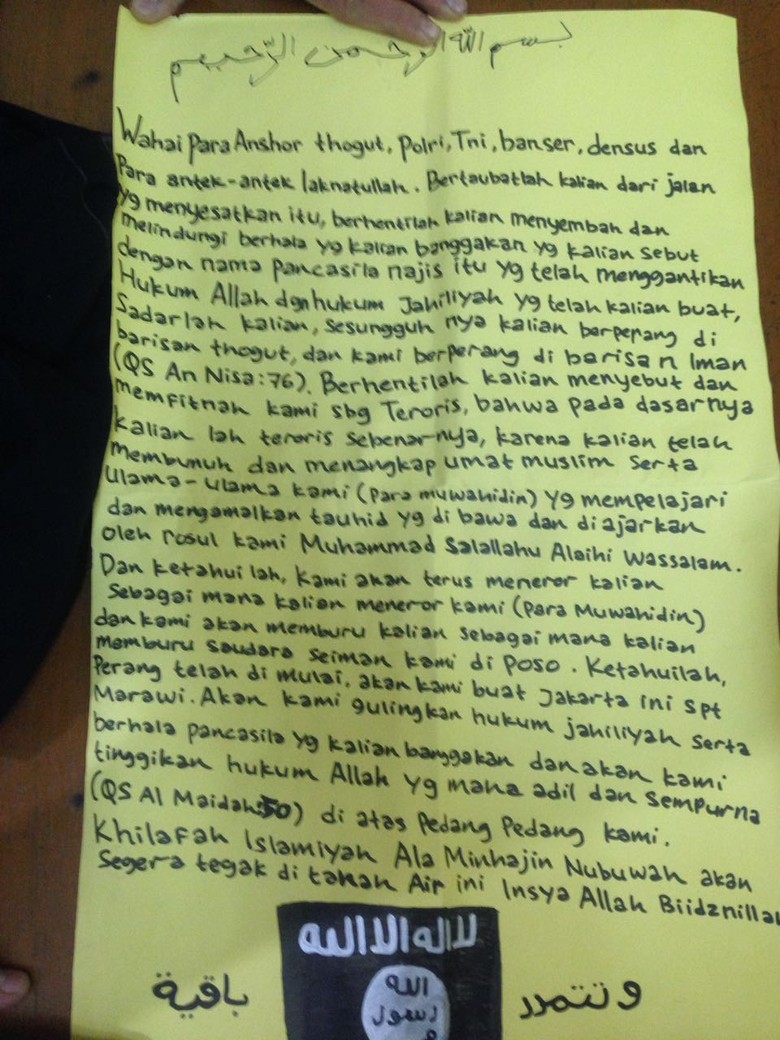 بسم الله الرحمن الرحيم
Wahai Para Anshor thogut, Polri, Tni, banser, densus dan
Para antek-antek laknatullah. Bertaubatlah kalian dari jalan
yg menyesatkan itu, berhentilah kalian menyembah dan
melindungi berhala yg kalian banggakan yg kalian sebut
dengan nama Pancasila najis itu yg telah menggantikan
Hukum Allah dgn hukum Jahiliyah yg telah kalian buat,
Sadarlah kalian, sesungguh nya kalian berperang di
barisan thogut, dan kami berperang di barisan Iman
(QS An Nisa:76). Berhentilah kalian menyebut dan
memfitnah kami sbg Teroris, bahwa pada dasarnya
kalian lah teroris sebenar-nya, karena kalian telah
Membunuh dan menangkap umat muslim serta
ulama-ulama kami (para muwahidin) yg mempelajari
dan mengamalkan tauhid yg di bawa dan di ajarkan
oleh rosul kami Muhammad Salallahu Alaihi Wassalam.
Dan ketahui lah, kami akan terus meneror kalian
Sebagai mana kalian meneror kami (para Muwahidin)
dan kami akan memburu kalian sebagai mana kalian
memburu saudara seiman kami di poso. Ketahuilah,
Perang telah di mulai, akan kami buat Jakarta ini spt
Marawi. Akan kami gulingkan hukum jahiliyah serta
berhala pancasila yg kalian banggakan dan akan kami
tinggikan hukum Allah yg mana adil dan sempurna
(QS Al Maidah:50) di atas Pedang Pedang kami.
Khilafah Islamiyah Ala Minhajin Nubuwah akan
Segera tegak di tanah Air ini Insya Allah Biidznillah
لا اله الا الله
الله
رسول
باقية وتتمدد